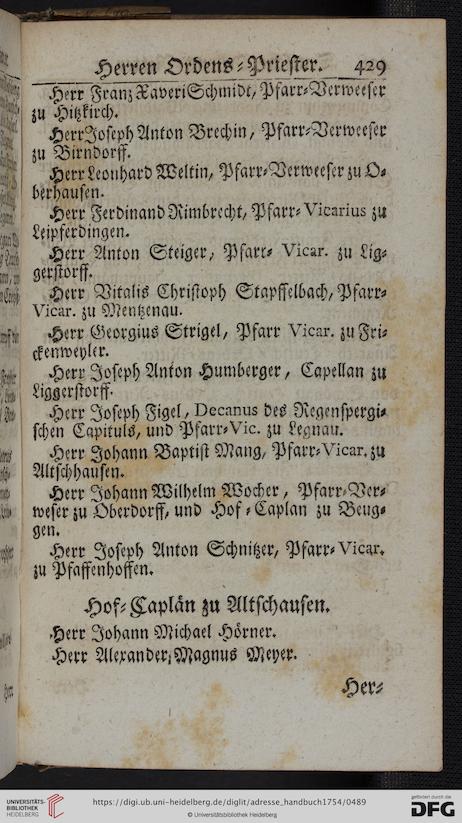 Herren Ordens-Priester. 429
Herr Franz Xaveri Schmidt, Pfarr-Verweeser
zu Hitzkirch.
Herr Joseph Anton Brechin, Pfarr-Verweeser
zu Birndorff.
Herr Leonhard Weltin, Pfarr-Verweeser zu O-
berhausen.
Herr Ferdinand Rimbrecht, Pfarr-Vicarius zu
Leipferdingen.
Herr Anton Steiger, Pfarr-Vicar. zu Lig-
gerstorff.
Herr Vitalis Christoph Stapffelbach, Pfarr-
Vicar. zu Mentzenau.
Herr Georgius Strigel, Pfarr Vicar. zu Fri-
ckenweyler.
Herr Joseph Anton Humberger, Capellan zu
Liggerstorff.
Herr Joseph Figel, Decanus des Regenspergi-
schen Capituls, und Pfarr-Vic. zu Legnau.
Herr Johann Baptist Mang, Pfarr-Vicar. zu
Altschhausen.
Herr Johann Wilhelm Wocher, Pfarr-Ver-
weser zu Oberdorff, und Hof-Caplan zu Beug-
gen.
Herr Joseph Anton Schnitzer, Pfarr-Vicar.
zu Pfaffenhoffen.
Hof-Caplän zu Altschausen.
Herr Johann Michael Hörner.
Herr Alexander, Magnus Meyer.
Her-
UNIVERSITÄTS-
BIBLIOTHEK
HEIDELBERG
https://digi.ub.uni-heidelberg.de/diglit/adresse_handbuch1754/0489
© Universitätsbibliothek Heidelberg
gefördert durch die
DFG